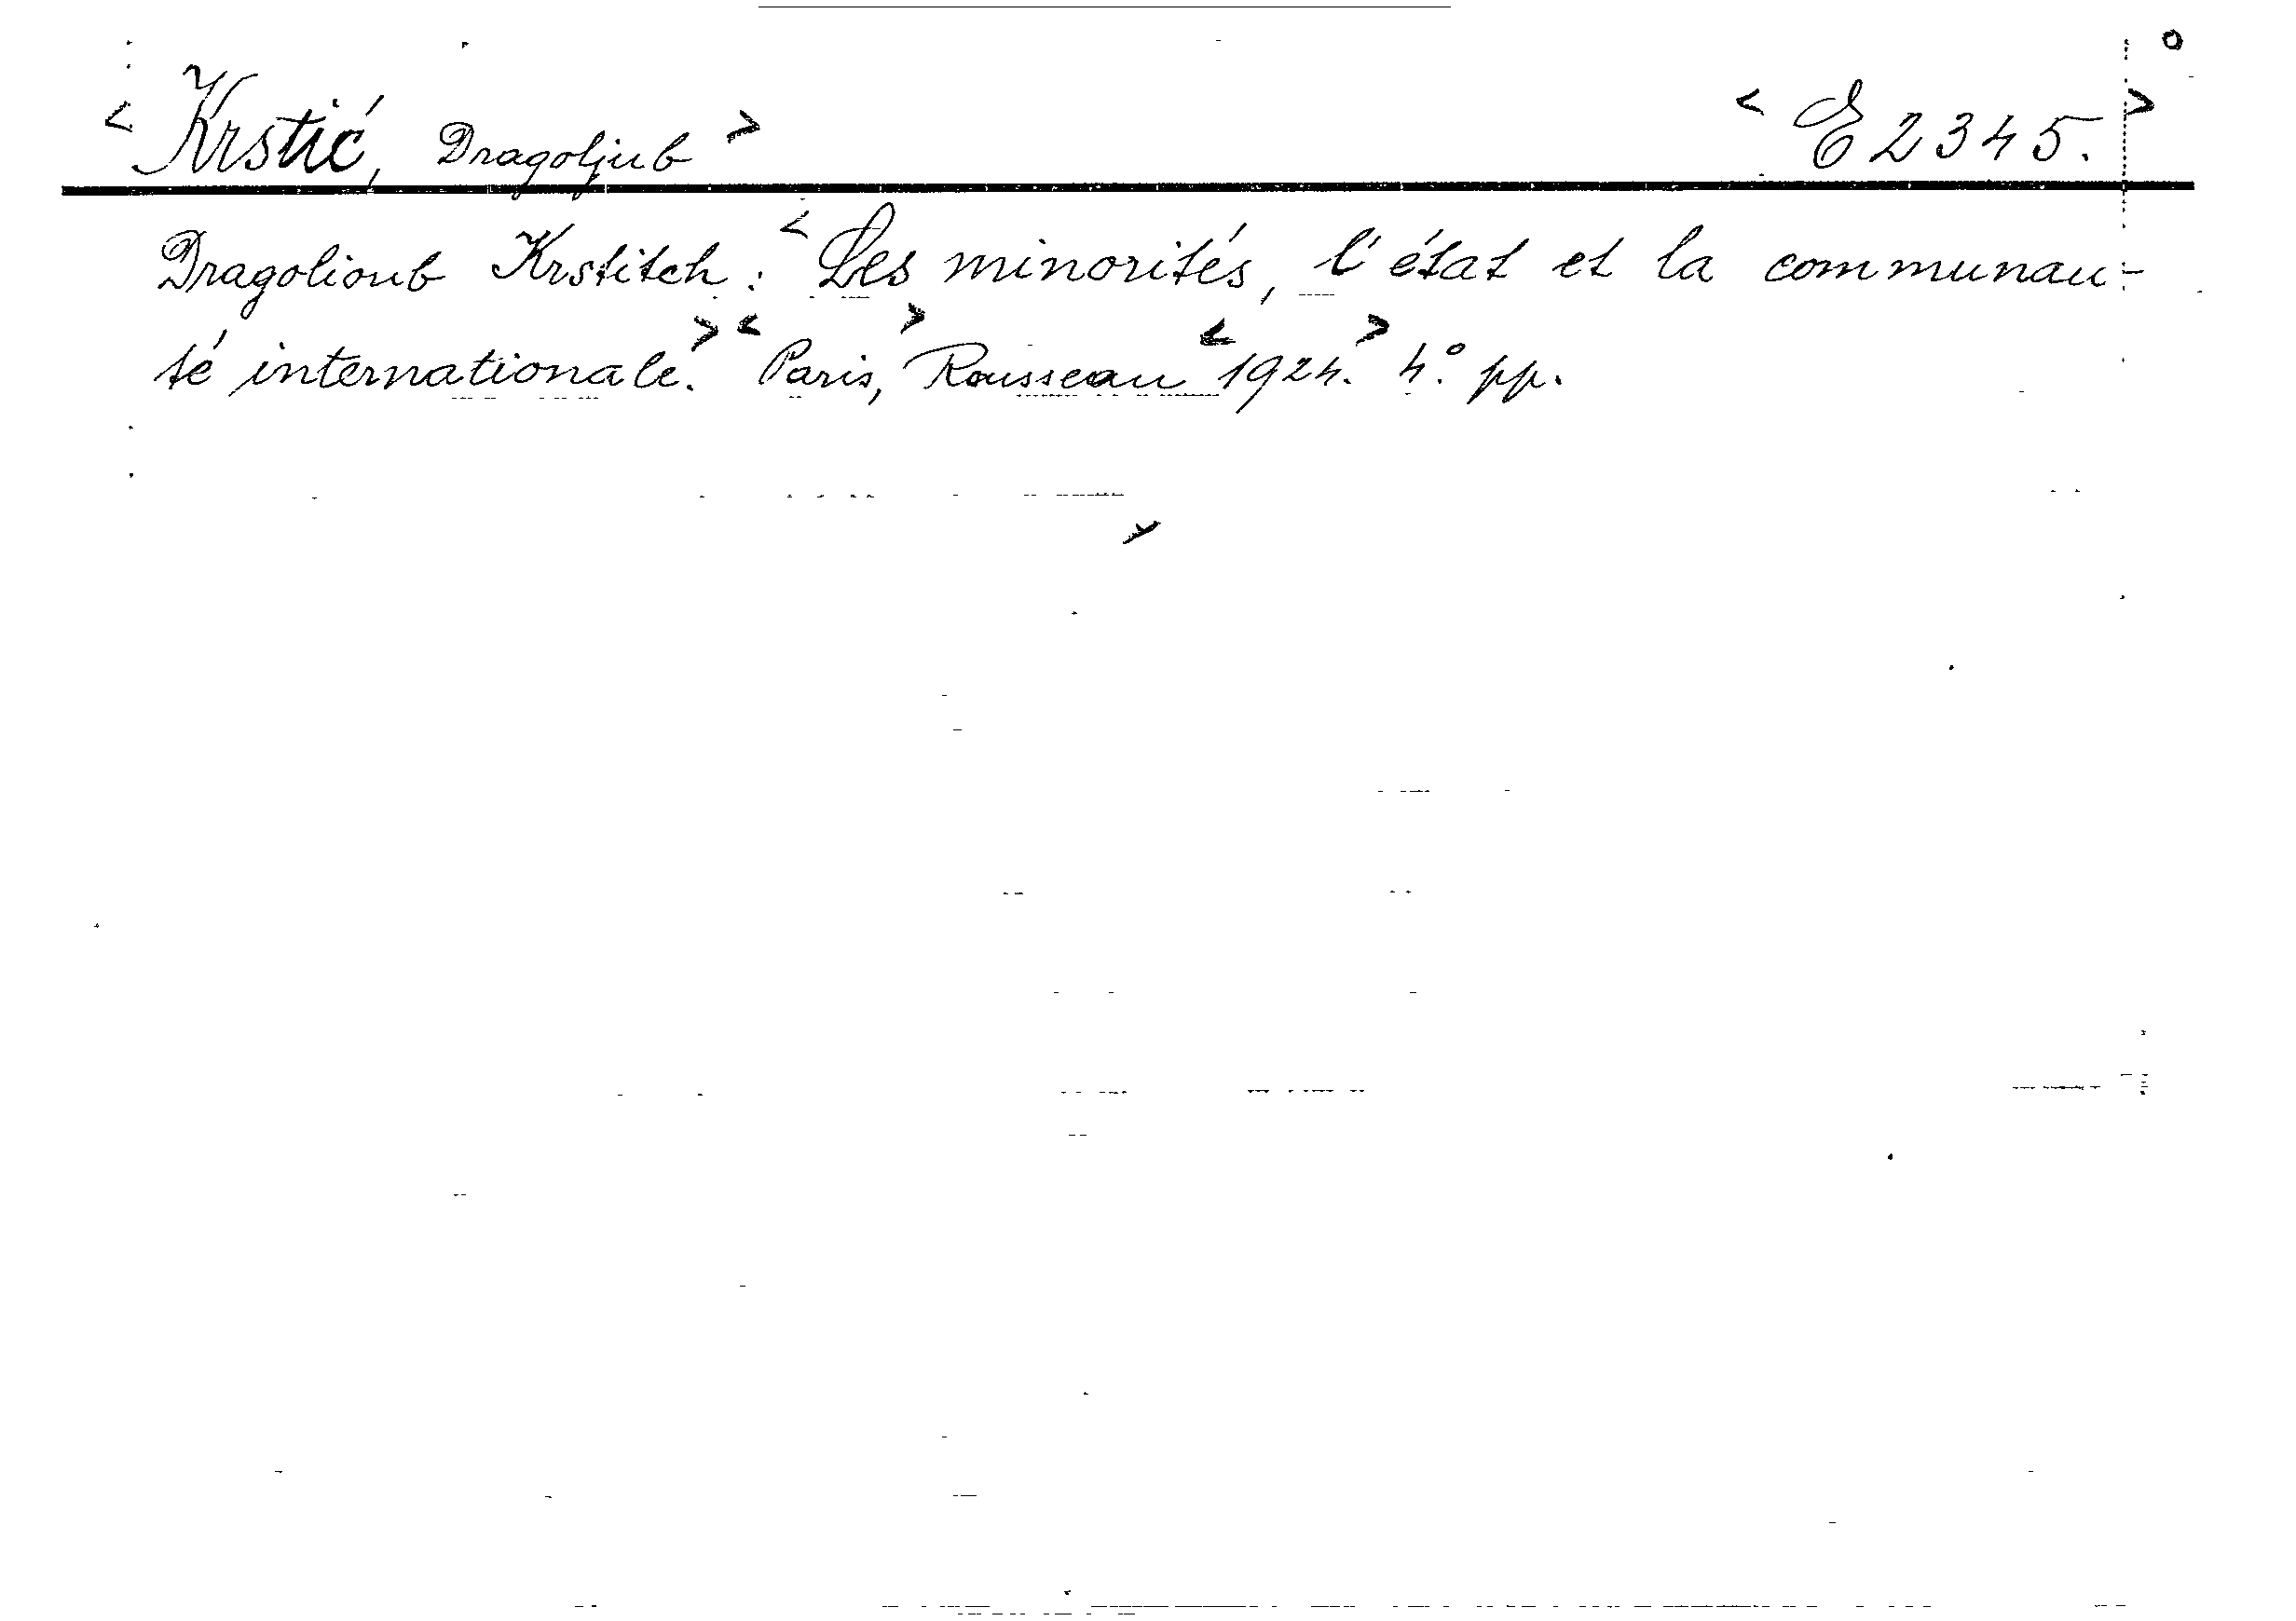 < Krstić, Dragoljub > < E 2345. >
Dragolioub Krstitch: < Les minorités, l'état et la communau-
té internationale. > < Paris, > Rousseau < 1924. > 4° pp.